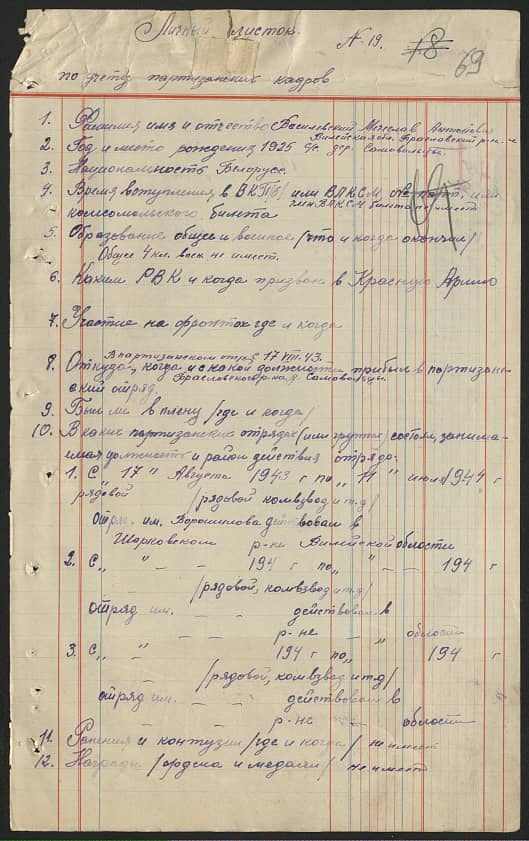 Личный листок.
N. 19. 18
69
по учету партизанских кадров
1. Фамилия имя и отчество Василевский Мечеслав Антонович
Вилейская обл. Браславский р-н
2. Год и место рождения 1925 с/с. дер. Самовольцы.
3. Национальность Беларусс.
4. Время вступления в ВКП/б/ или ВЛКСМ № парт. или
член ВЛКСМ билета не имеет
комсомольского билета
5. Образование общее и военное /что и когда окончал/
Общее 4 кл. воен. не имеет.
6. Каким РВК и когда призван в Красную Армию
7. Участие на фронтах где и когда
В партизанском отряде 17 VIII. 43.
8. Откуда, когда и с какой должности прибыл в партизан-
ский отряд. Браславского р-на д. Самовольцы.
9. Был ли в плену /где и когда/
10. В каких партизанских отрядах (или группах) состоял, занима-
емая должность и район действия отряда:
1. С „ 17 " Августа 1943 г по „ 11 " июля 1944 г
рядовой /рядовой комвзвод и т.д/
отряд им. Ворошилова действовал в
Шарковском р-не Вилейской области
2. С „ " — 194 г по „ " — 194 г
/рядовой, комвзвод и т.д/
отряд им. — — действовал в
— — р-не — „ области
3. С „ " — 194 г по „ 194 г
/рядовой, комвзвод и т.д/
отряд им. — — действовал в
— — р-не — области
11. Ранения и контузии /где и когда/ не имеет
12. Награды /ордена и медали/ не имеет